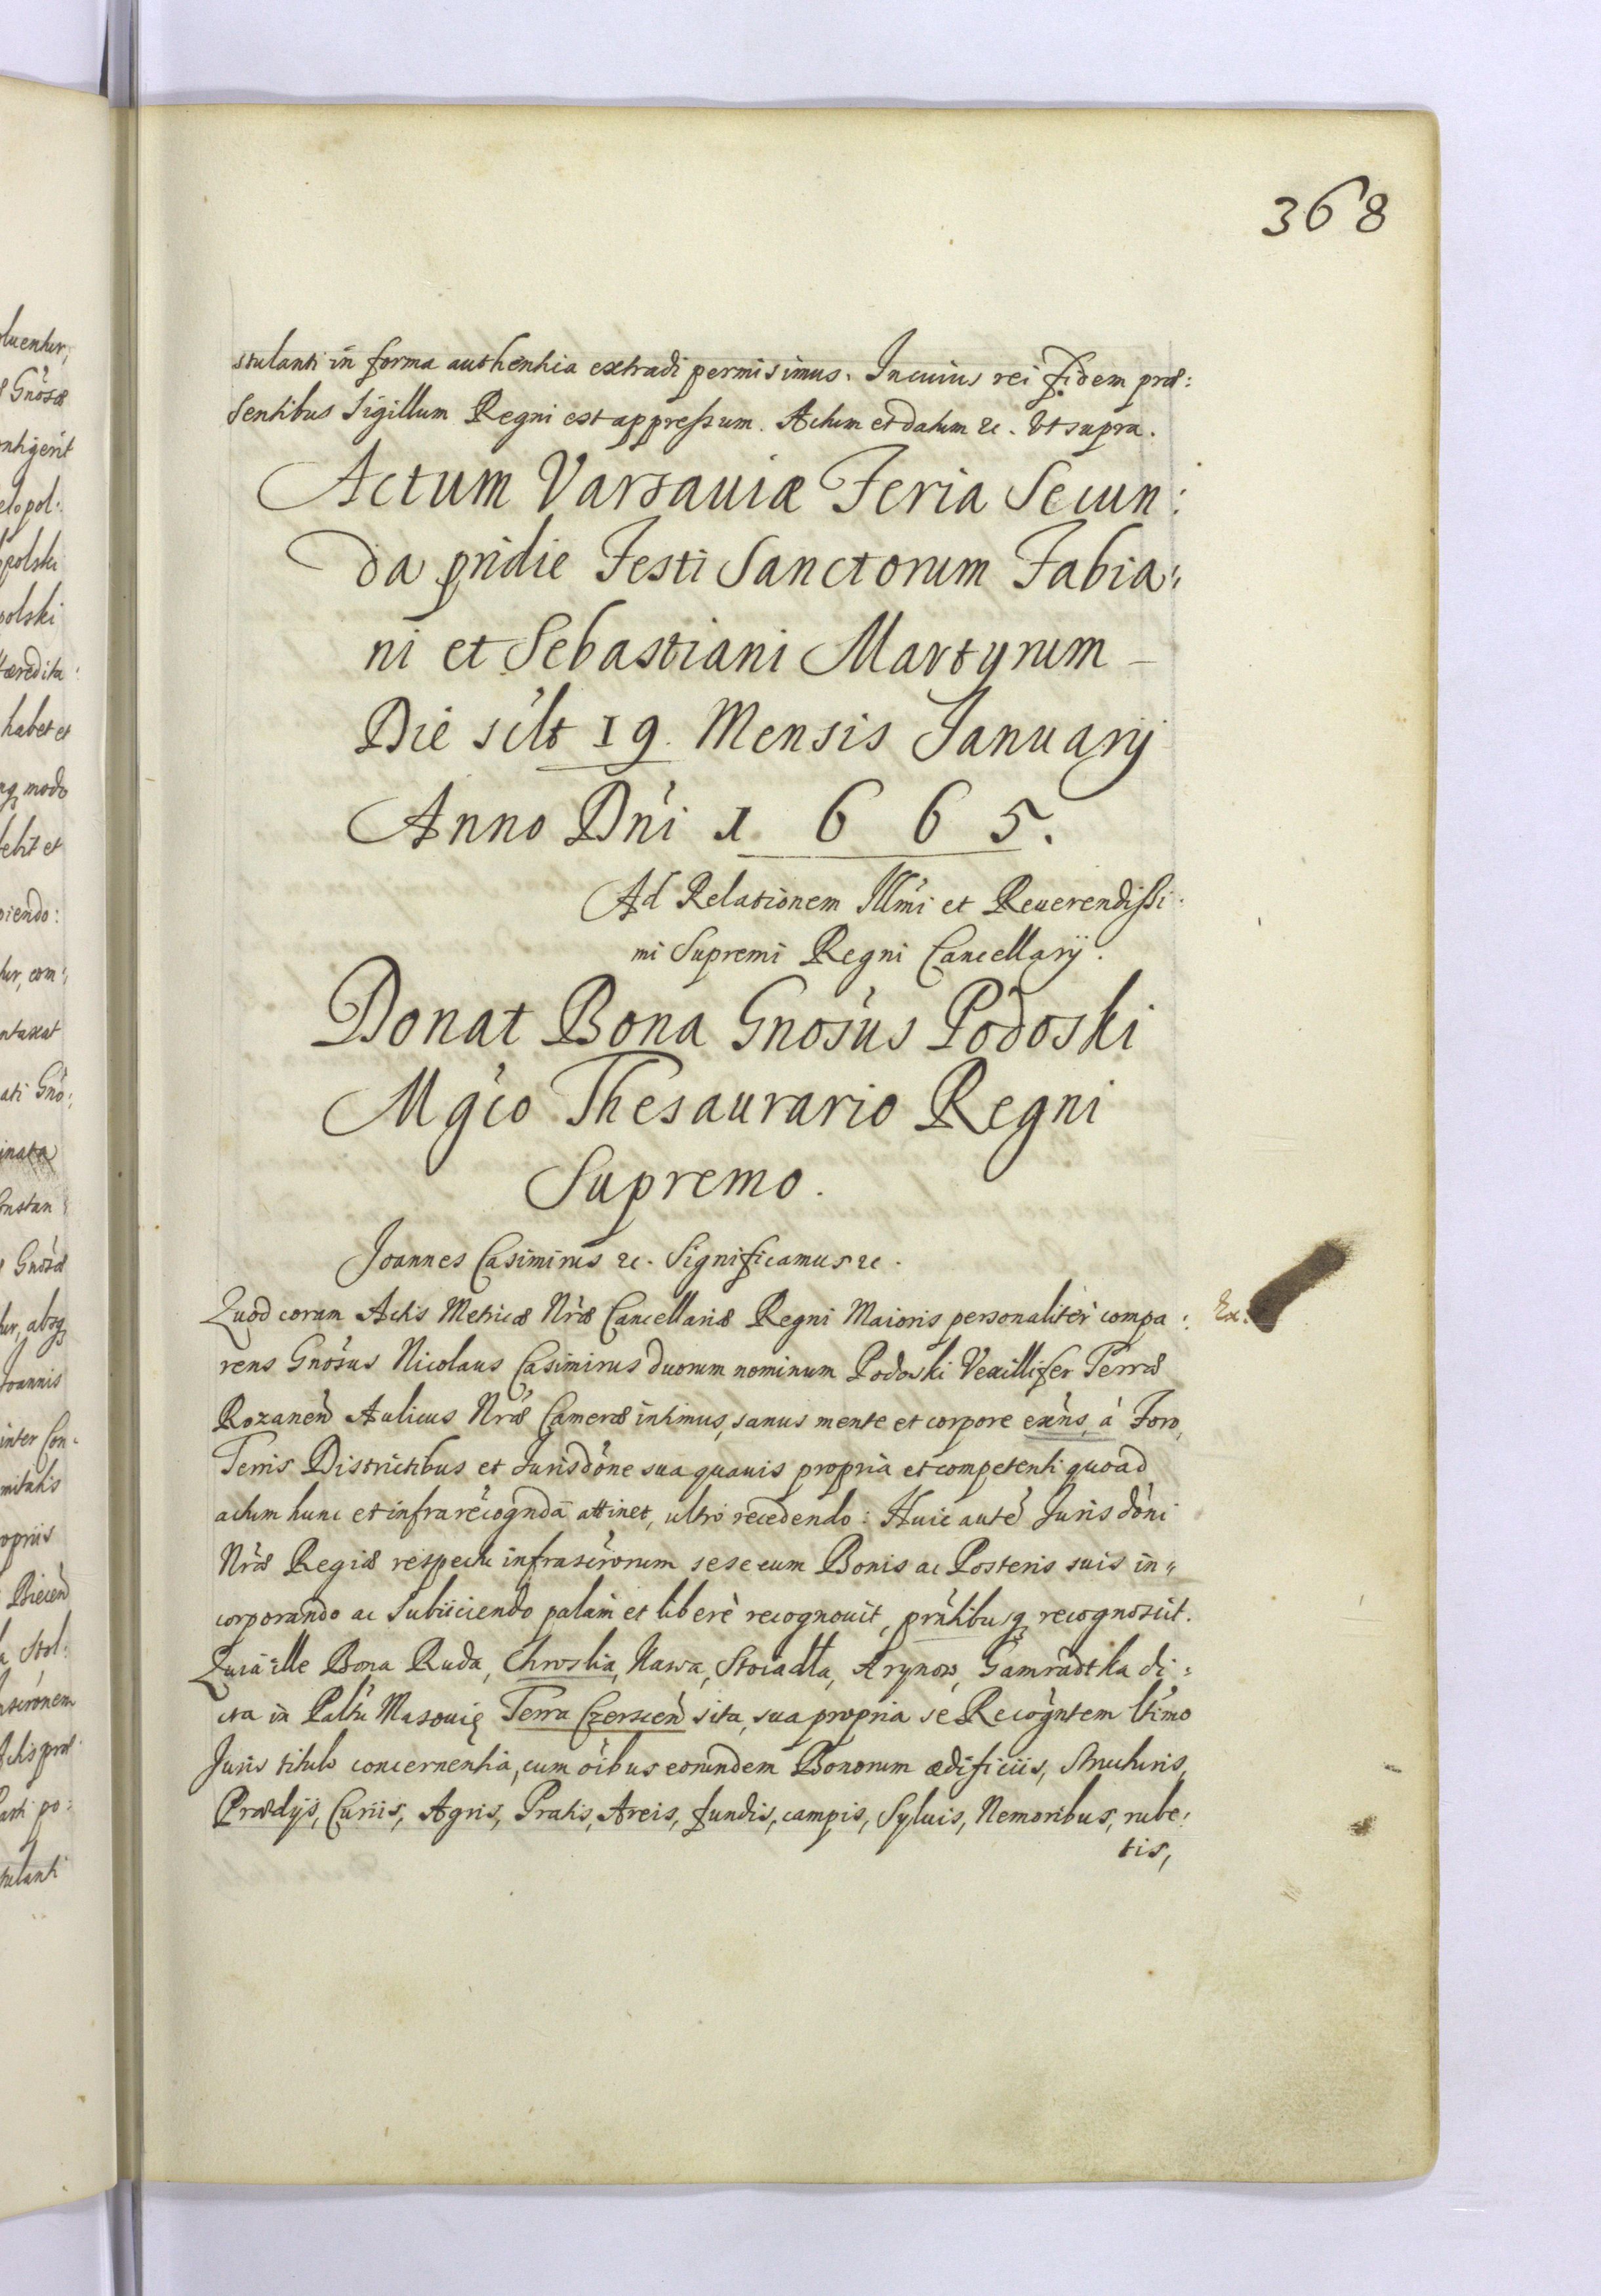 368
stulanti in forma authentica extradi permisimus. In cuius rei fidem præ:
sentibus Sigillum Regni est appressum. Actum et datum &c. Vt supra.
Actum Varsauiæ Feria Secun:
da pridie Festi Sanctorum Fabia:
ni et Sebastiani Martyrum
Die scilt 19. Mensis Januarij
Anno Dni 1665.
Ad Relationem Illmi et Reuerendissi:
mi Supremi Regni Cancellarij.
Donat Bona Gnosus Podoski
Mgco Thesaurario Regni
Supremo.
Joannes Casimirus &c. Significamus &c.
Quod coram Actis Metricæ Nræ Cancellariæ Regni Maioris personaliter compa:
rens Gnosus Nicolaus Casimirus duorum nominum Podoski Vexillifer Terræ
Rozanen Aulicus Nræ Cameræ intimus, sanus mente et corpore exns, à Foro,
Terris Districtibus et Jurisdone sua quauis propria et competenti quoad
actum hunc et infra recognda attinet, ultro recedendo: Huic aute Jurisdoni
Nræ Regiæ respectu infrascrorum sese cum Bonis ac Posteris suis in:
corporando ac Subiiciendo palam et liberè recognouit, prntibusq recognoscit.
Quia ille Bona Ruda, Chroslia, Nawa, Stoiadła, Arynow, Gamradtka di:
cta in Paltu Masouię Terra Czerscen sita, sua propria se Recogntem ltimo
Juris titulo concernentia, cum oibus eorundem Bonorum ædificiis, Structuris,
Prædijs, Curiis, Agris, Pratis, Areis, fundis, campis, Syluis, Nemoribus, rube:
tis,